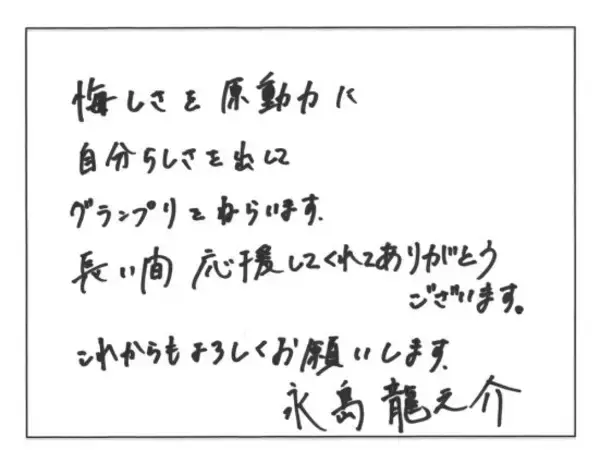 悔しさを原動力に
自分らしさを出して
グランプリをねらいます。
長い間 応援してくれてありがとう
ございます。
これからもよろしくお願いします。
永島 龍之介